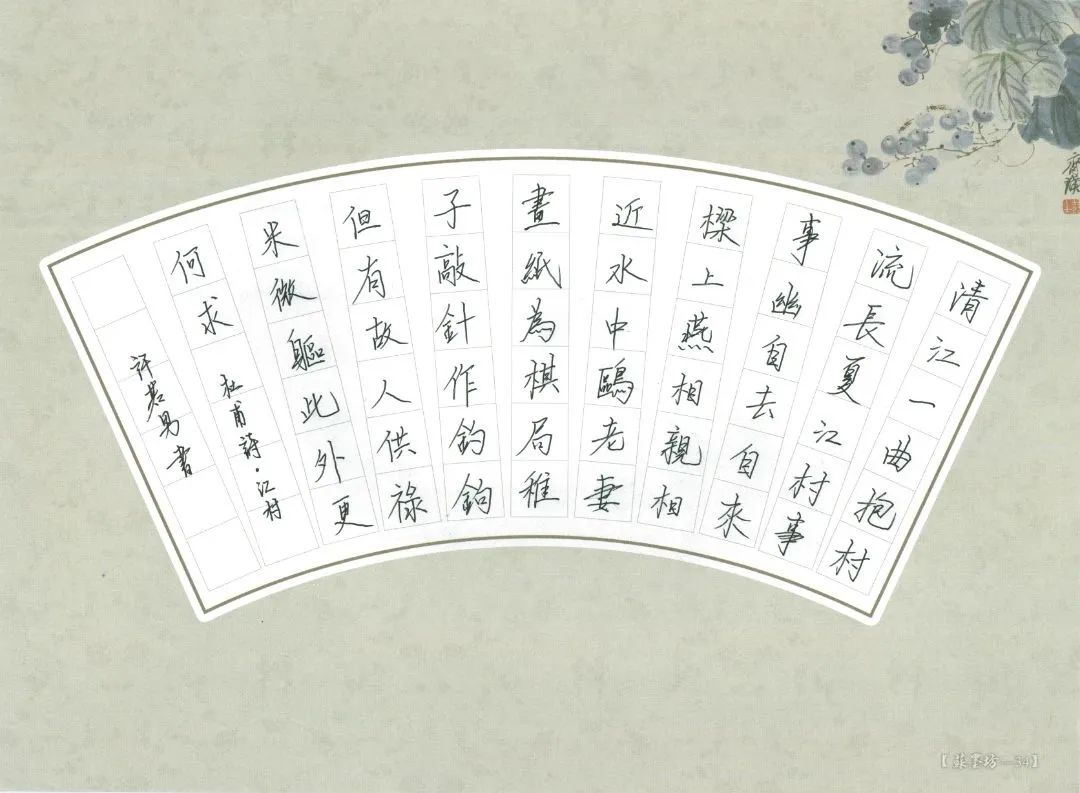 清江一曲抱村
流長夏江村事
事幽自去自來
樑上燕相親相
近水中鷗老妻
畫紙為棋局稚
子敲針作釣鉤
但有故人供祿
米微軀此外更
何求
杜甫詩·江村
許書
墨坊—34